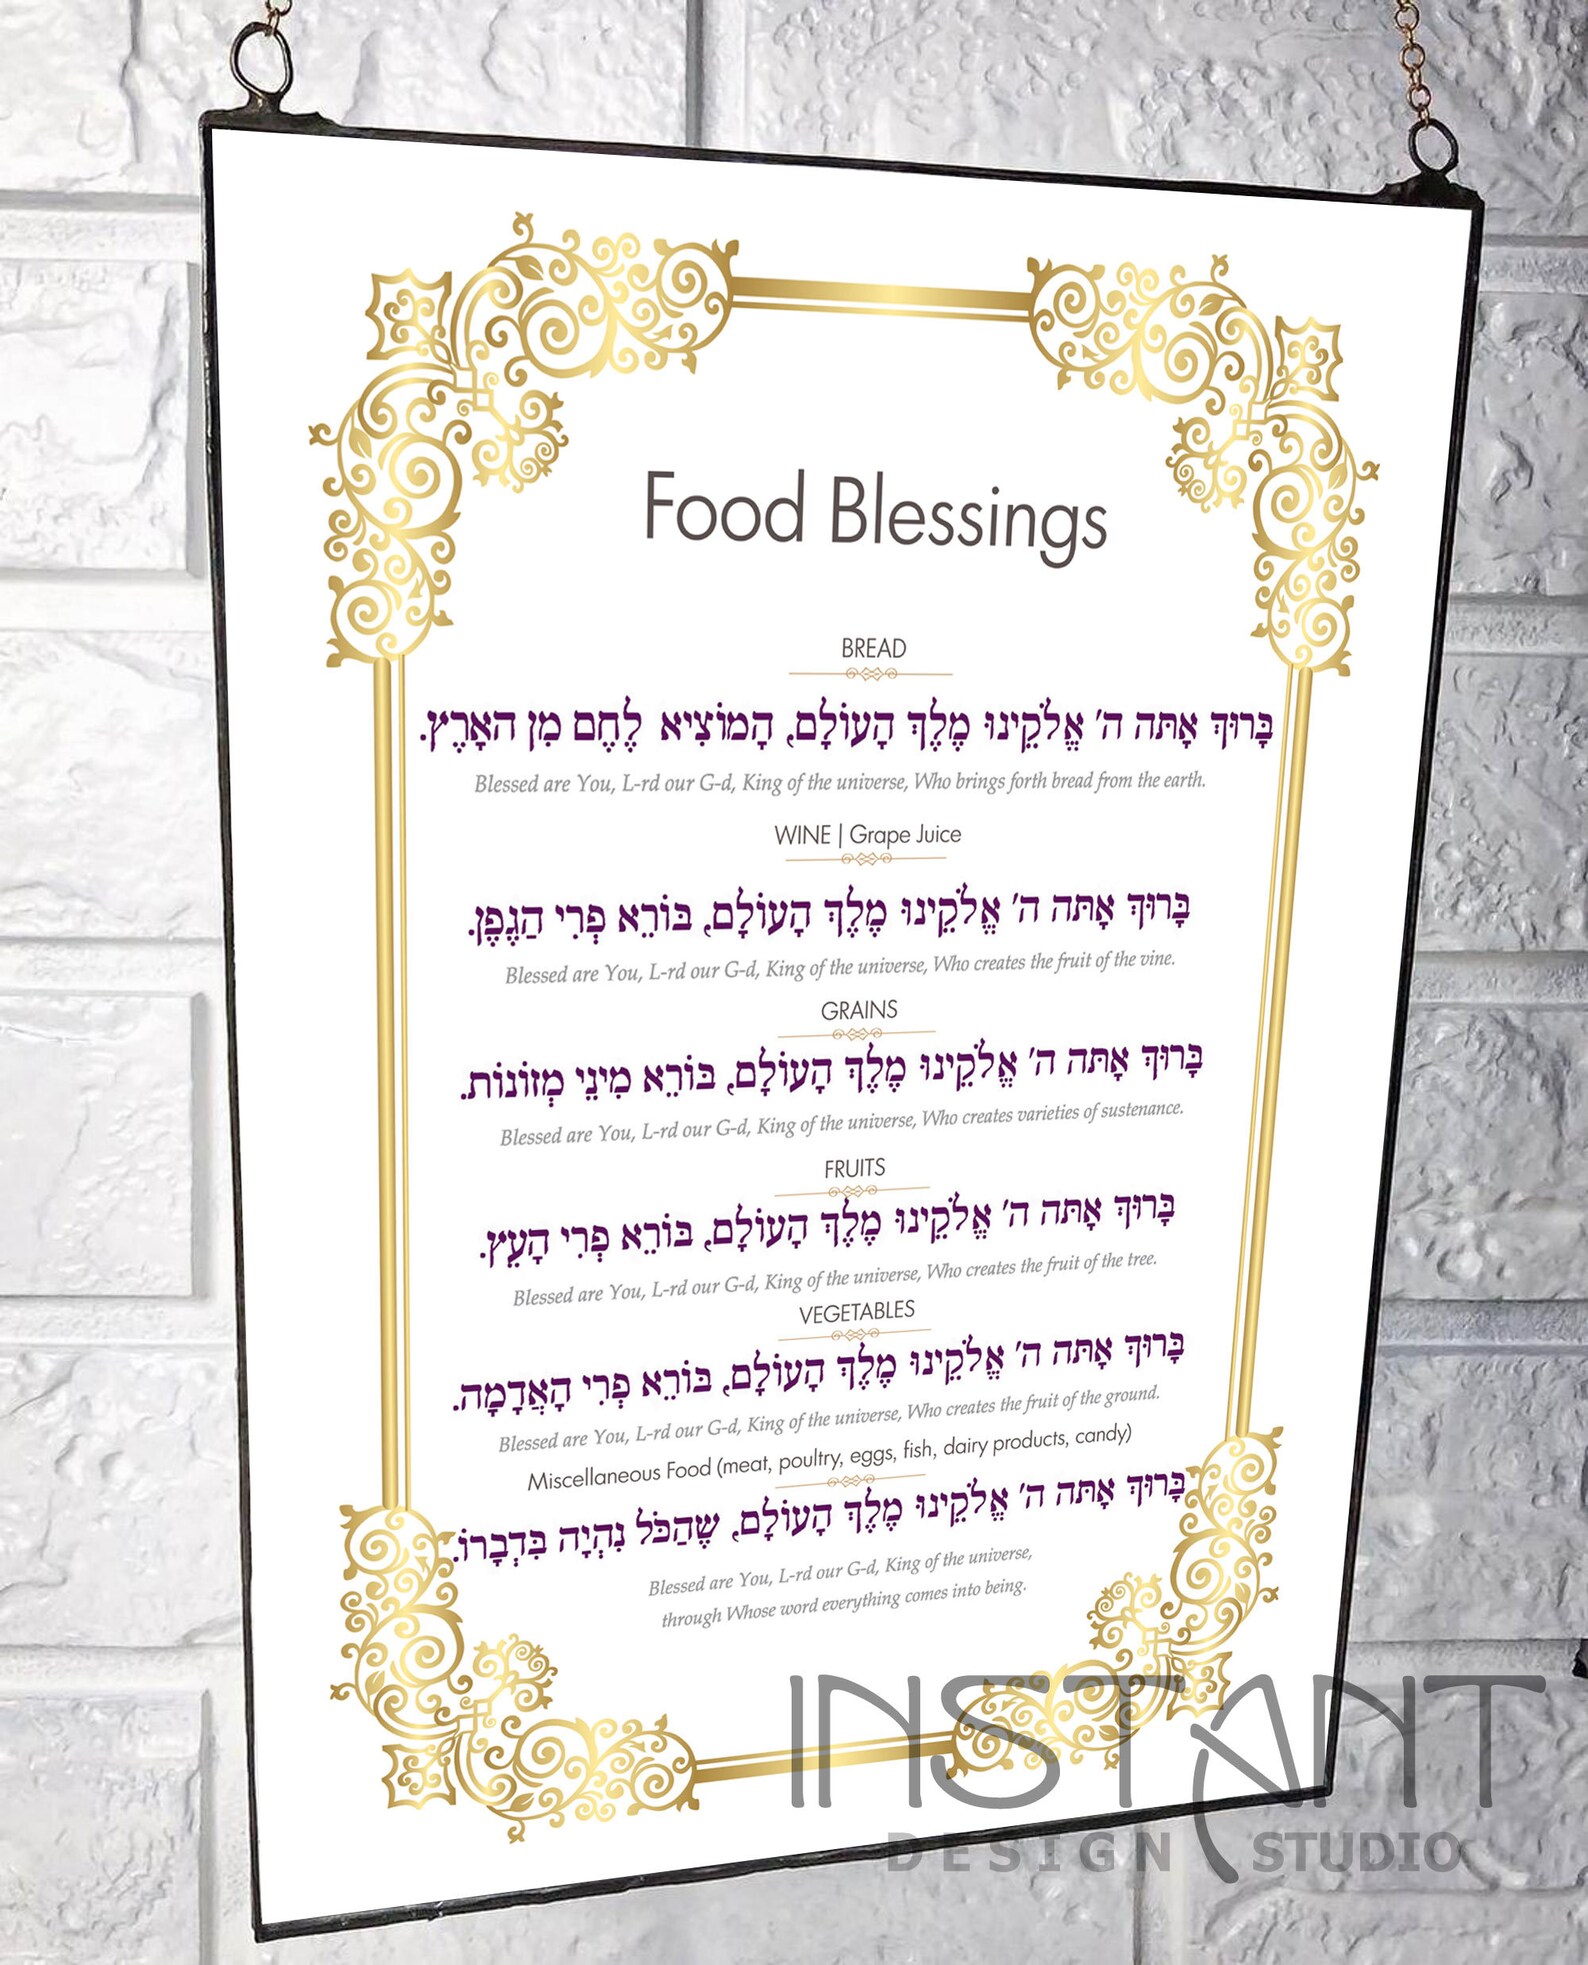 Food Blessings
BREAD
בָּרוּךְ אַתָּה ה' אֱלֹקֵינוּ מֶלֶךְ הָעוֹלָם, הָמוֹצִיא לֶחֶם מִן האָרֶץ.
Blessed are You, L-rd our G-d, King of the universe, Who brings forth bread from the earth.
WINE | Grape Juice
בָּרוּךְ אַתָּה ה' אֱלֹקֵינוּ מֶלֶךְ הָעוֹלָם, בּוֹרֵא פְרִי הַגֶפֶן.
Blessed are You, L-rd our G-d, King of the universe, Who creates the fruit of the vine.
GRAINS
בָּרוּךְ אַתָּה ה' אֱלֹקֵינוּ מֶלֶךְ הָעוֹלָם, בּוֹרֵא מִינֵי מְזוֹנוֹת.
Blessed are You, L-rd our G-d, King of the universe, Who creates varieties of sustenance.
FRUITS
בָּרוּךְ אַתָּה ה' אֱלֹקֵינוּ מֶלֶךְ הָעוֹלָם, בּוֹרֵא פְּרִי הָעֵץ.
Blessed are You, L-rd our G-d, King of the universe, Who creates the fruit of the tree.
VEGETABLES
בָּרוּךְ אַתָּה ה' אֱלֹקֵינוּ מֶלֶךְ הָעוֹלָם, בּוֹרֵא פְּרִי הָאֲדָמָה.
Blessed are You, L-rd our G-d, King of the universe, Who creates the fruit of the ground.
Miscellaneous Food (meat, poultry, eggs, fish, dairy products, candy)
בָּרוּךְ אַתָּה ה' אֱלֹקֵינוּ מֶלֶךְ הָעוֹלָם, שֶׁהַכֹּל נִהְיָה בִּדְבָרוֹ.
Blessed are You, L-rd our G-d, King of the universe,
through Whose word everything comes into being.
INSTANT
DESIGN STUDIO